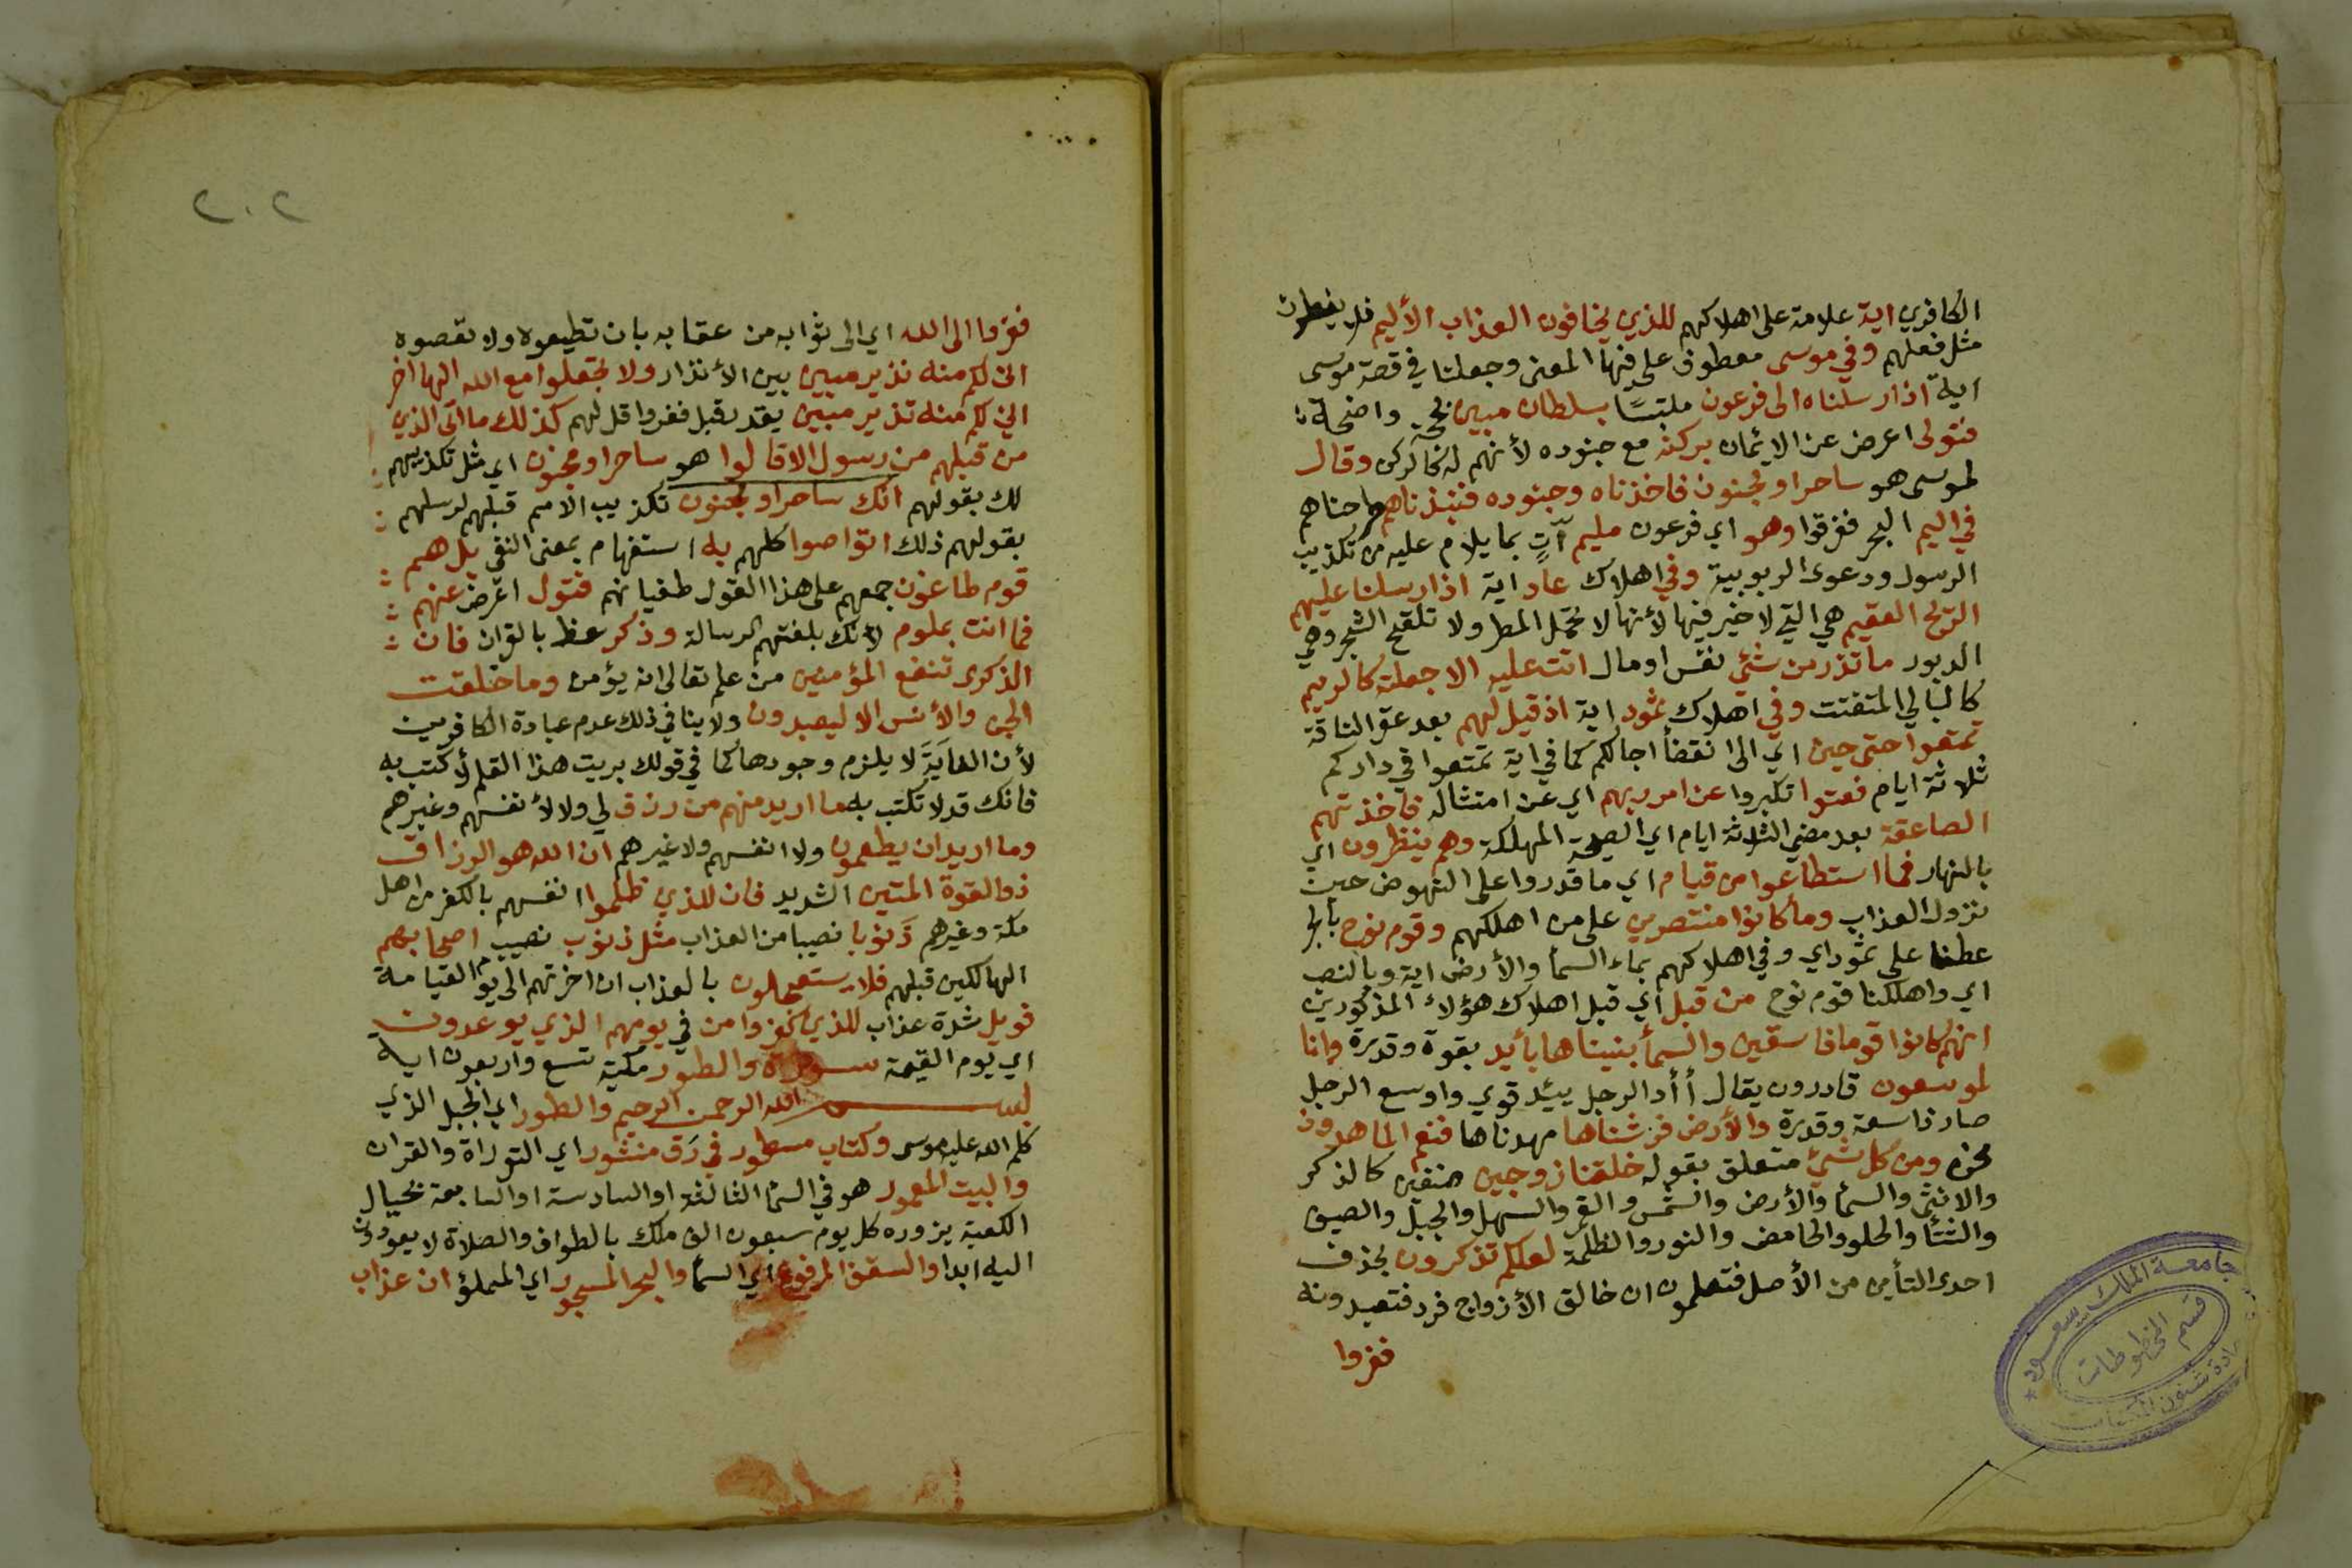 الكافرين اية علامة على اهلاكهم للذين يخافون العذاب الأليم فلا يفعلون
مثل فعلهم وفي موسى معطوف على فيها المعنى وجعلنا في قصة موسى
اية اذ ارسلناه الى فرعون ملتبسًا بسلطان مبين بحجة واضحة
فتولى اعرض عن الايمان بركنه مع جنوده لأنهم له كالركن وقال
لموسى هو ساحر او مجنون فاخذناه وجنوده فنبذناهم طرحناهم
في اليم البحر فغرقوا وهو اي فرعون مليم آتٍ بما يلام عليه من تكذيب
الرسول ودعوى الربوبية وفي اهلاك عاد اية اذ ارسلنا عليهم
الريح العقيم هي التي لا خير فيها لأنها لا تحمل المطر ولا تلقح الشجر وهي
الدبور ما تذر من شئ نفس او مال اتت عليه الا جعلته كالرميم
كالبالي المتفتت وفي اهلاك ثمود اية اذ قيل لهم بعد عقر الناقة
تمتعوا حتى حين اي الى انقضأ اجالكم كما في اية تمتعوا في داركم
ثلاثة ايام فعتوا تكبروا عن امر ربهم اي عن امتثاله فاخذتهم
الصاعقة بعد مضي الثلاثة ايام اي الصيحة المهلكة وهم ينظرون اي
بالنهار فما استطاعوا من قيام اي ما قدروا على النهوض حين
نزول العذاب وما كانوا منتصرين على من اهلكهم وقوم نوح بالجر
عطفا على ثمود اي وفي اهلاكهم بماء السمأ والأرض اية وبالنصب
اي واهلكنا قوم نوح من قبل اي قبل اهلاك هؤلاء المذكورين
انهم كانوا قوما فاسقين والسمأ بنيناها بأيد بقوة وقدرة وانا
لموسعون قادرون يقال أأد الرجل يئيد قوي واوسع الرجل
صار ذا سعة وقدرة والأرض فرشناها مهدناها فنعم الماهدون
نحن ومن كل شئ متعلق بقوله خلقنا زوجين صنفين كالذكر
والانثى والسمأ والأرض والشمس والقمر والسهل والجبل والصيف
والشتأ والحلو والحامض والنور والظلمة لعلكم تذكرون بحذف
احدى التأين من الأصل فتعلمون ان خالق الأزواج فرد فتعبدونه
ففروا
جامعة الملك سعود
قسم المخطوطات
عمادة شئون المكتبات
٢٠٢
ففروا الى الله اي الى ثوابه من عقابه بان تطيعوه ولا تعصوه
اني لكم منه نذير مبين بين الأنذار ولا تجعلوا مع الله الها اخر
اني لكم منه نذير مبين يقدر قبل ففروا قل لهم كذلك ما اتى الذين
من قبلهم من رسول الا قالوا هو ساحر او مجنون اي مثل تكذيبهم
لك بقولهم انك ساحر او مجنون تكذيب الامم قبلهم لرسلهم
بقولهم ذلك اتواصوا كلهم به استفهام بمعنى النفي بل هم
قوم طاغون جمعهم على هذا القول طغيانهم فتول اعرض عنهم
فما انت بملوم لأنك بلغتهم الرسالة وذكر عظ بالقران فان
الذكرى تنفع المؤمنين من علم تعالى انه يؤمن وما خلقت
الجن والأنس الا ليعبدون ولا ينافي ذلك عدم عبادة الكافرين
لأن الغاية لا يلزم وجودها كما في قولك بريت هذا القلم لأكتب به
فانك قد لا تكتب به ما اريد منهم من رزق لي ولا لأنفسهم وغيرهم
وما اريد ان يطعمون ولا انفسهم ولا غيرهم ان الله هو الرزاق
ذو القوة المتين الشديد فان للذين ظلموا انفسهم بالكفر من اهل
مكة وغيرهم ذَنوبا نصيبا من العذاب مثل ذنوب نصيب اصحابهم
الهالكين قبلهم فلا يستعجلون بالعذاب ان اخرتهم الى يوم القيامة
فويل شدة عذاب للذين كفروا من في يومهم الذي يوعدون
اي يوم القيمة سورة والطور مكية تسع واربعون اية
بسم الله الرحمن الرحيم والطور اي الجبل الذي
كلم الله عليه موسى وكتاب مسطور في رَق منشور اي التوراة والقران
والبيت المعمور هو في السمأ الثالثة او السادسة او السابعة بحيال
الكعبة يزوره كل يوم سبعون الف ملك بالطواف والصلاة لا يعودون
اليه ابدا والسقف المرفوع اي السمأ والبحر المسجور اي المملؤ ان عذاب